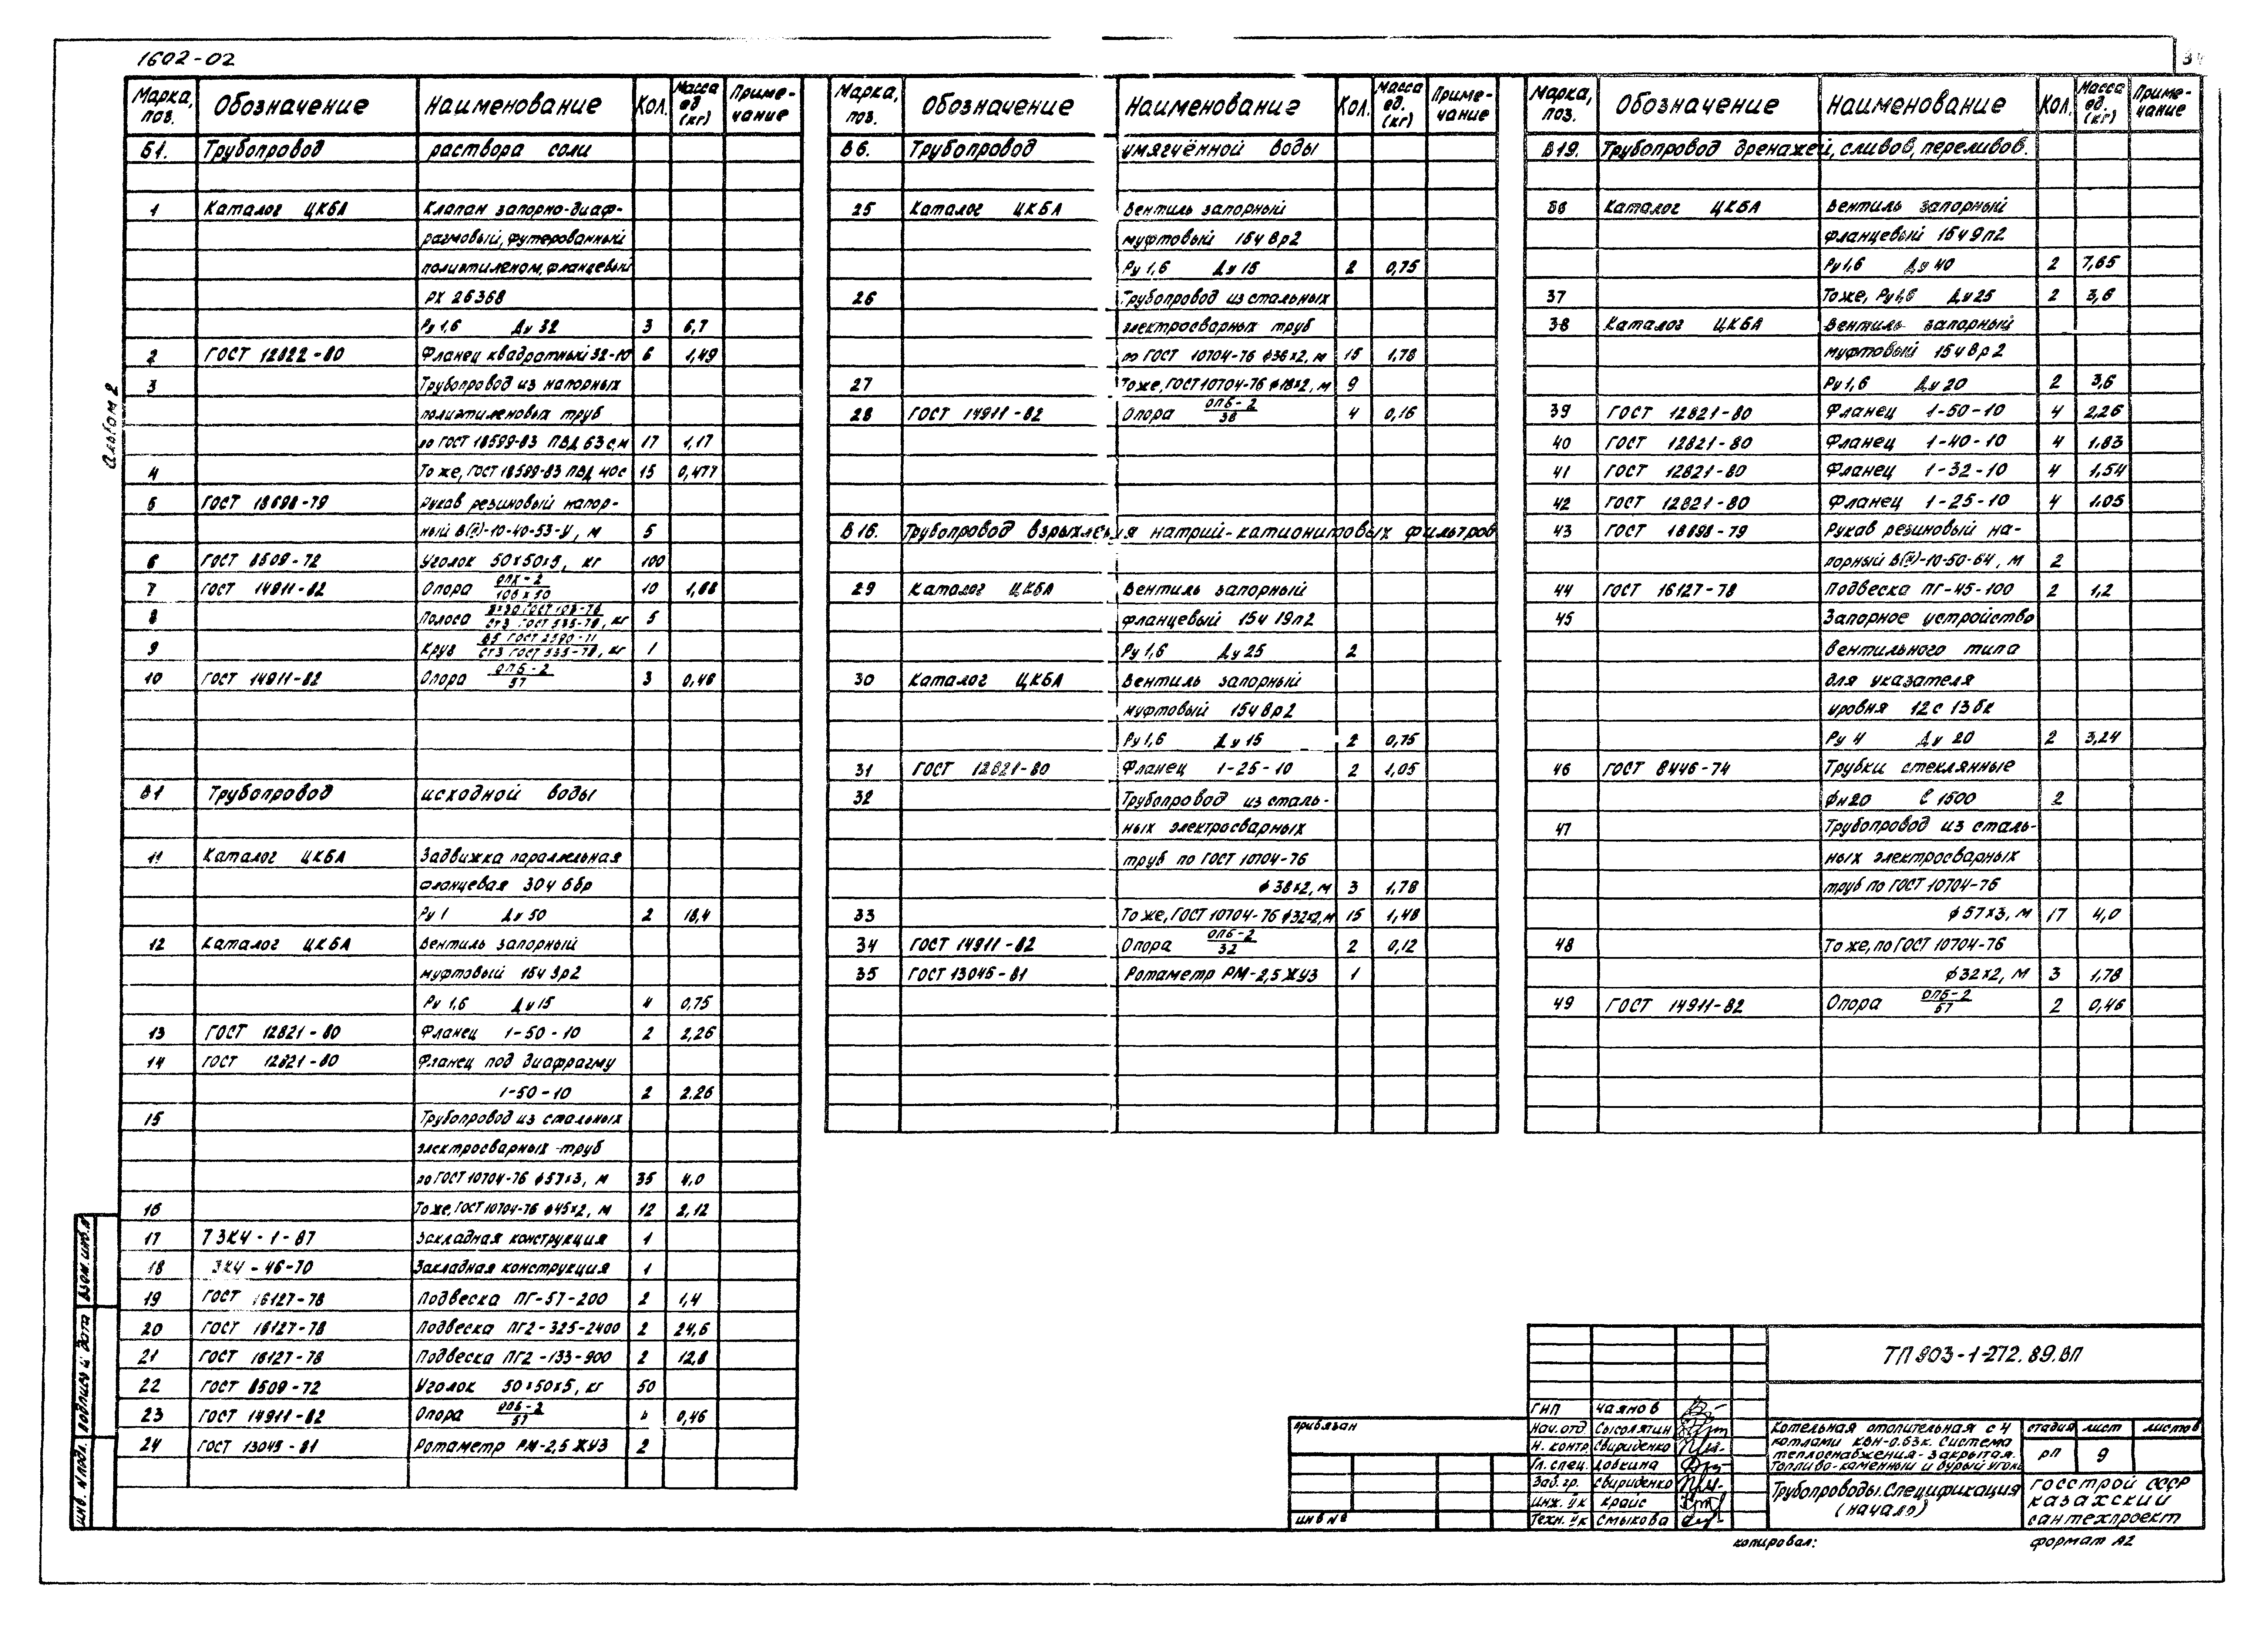 1602-02
34
Альбом 2
Марка, поз. Обозначение Наименование Кол. Масса ед (кг) Приме-чание
Б1. Трубопровод раствора соли
1 Каталог ЦКБА Клапан запорно-диаф-
рагмовый, футерованный
полиэтиленом, фланцевый
РХ 26368
Ру 1,6 Ду 32 3 6,7
2 ГОСТ 12822-80 Фланец квадратный 32-10 6 1,49
3 Трубопровод из напорных
полиэтиленовых труб
по ГОСТ 18599-83 ПВД 63с, м 17 1,17
4 То же, ГОСТ 18599-83 ПВД 40с 15 0,477
5 ГОСТ 18698-79 Рукав резиновый напор-
ный В(II)-10-40-53-У, м 5
6 ГОСТ 8509-72 Уголок 50х50х5, кг 100
7 ГОСТ 14911-82 Опора ОПХ-2/100х50 10 1,68
8 Полоса 3х30 ГОСТ 103-76/Ст3 ГОСТ 535-79, кг 5
9 Круг В5 ГОСТ 2590-71/Ст3 ГОСТ 535-79, кг 1
10 ГОСТ 14911-82 Опора ОПБ-2/57 3 0,46
В1 Трубопровод исходной воды
11 Каталог ЦКБА Задвижка параллельная
фланцевая 30ч 6бр
Ру 1 Ду 50 2 18,4
12 Каталог ЦКБА Вентиль запорный
муфтовый 15ч 8р2
Ру 1,6 Ду 15 4 0,75
13 ГОСТ 12821-80 Фланец 1-50-10 2 2,26
14 ГОСТ 12821-80 Фланец под диафрагму
1-50-10 2 2.26
15 Трубопровод из стальных
электросварных труб
по ГОСТ 10704-76 ф57х3, м 35 4,0
16 То же, ГОСТ 10704-76 ф45х2, м 12 2,12
17 ТЗК4-1-87 Закладная конструкция 1
18 ЗК4-46-70 Закладная конструкция 1
19 ГОСТ 16127-78 Подвеска ПГ-57-200 2 1,4
20 ГОСТ 16127-78 Подвеска ПГ2-325-2400 2 24,6
21 ГОСТ 16127-78 Подвеска ПГ2-133-900 2 12,8
22 ГОСТ 8509-72 Уголок 50х50х5, кг 50
23 ГОСТ 14911-82 Опора ОПБ-2/57 0,46
24 ГОСТ 13045-81 Ротаметр РМ-2,5 ЖУЗ 2
Марка, поз. Обозначение Наименование Кол. Масса ед. (кг) Приме-чание
В6. Трубопровод умягчённой воды
25 Каталог ЦКБА Вентиль запорный
муфтовый 15ч 8р2
Ру 1,6 Ду 15 2 0,75
26 Трубопровод из стальных
электросварных труб
по ГОСТ 10704-76 ф38х2, м 15 1,78
27 То же, ГОСТ 10704-76 ф18х2, м 9
28 ГОСТ 14911-82 Опора ОПБ-2/38 4 0,16
В16. Трубопровод взрыхления натрий-катионитовых фильтров
29 Каталог ЦКБА Вентиль запорный
фланцевый 15ч 19п2
Ру 1,6 Ду 25 2
30 Каталог ЦКБА Вентиль запорный
муфтовый 15ч 8р2
Ру 1,6 Ду 15 2 0,75
31 ГОСТ 12821-80 Фланец 1-25-10 2 1,05
32 Трубопровод из сталь-
ных электросварных
труб по ГОСТ 10704-76
ф 38х2, м 3 1,78
33 То же, ГОСТ 10704-76 ф32х2, м 15 1,48
34 ГОСТ 14911-82 Опора ОПБ-2/32 2 0,12
35 ГОСТ 13045-81 Ротаметр РМ-2,5 ЖУЗ 1
Марка, поз. Обозначение Наименование Кол. Масса ед. (кг) Приме-чание
В19. Трубопровод дренажей, сливов, переливов.
36 Каталог ЦКБА Вентиль запорный
фланцевый 15ч 9п2
Ру 1,6 Ду 40 2 7,65
37 То же, Ру 1,6 Ду 25 2 3,6
38 Каталог ЦКБА Вентиль запорный
муфтовый 15ч 8р2
Ру 1,6 Ду 20 2 3,6
39 ГОСТ 12821-80 Фланец 1-50-10 4 2,26
40 ГОСТ 12821-80 Фланец 1-40-10 4 1.83
41 ГОСТ 12821-80 Фланец 1-32-10 4 1,54
42 ГОСТ 12821-80 Фланец 1-25-10 4 1.05
43 ГОСТ 18698-79 Рукав резиновый на-
порный В(II)-10-50-64, м 2
44 ГОСТ 16127-78 Подвеска ПГ-45-100 2 1,2
45 Запорное устройство
вентильного типа
для указателя
уровня 12с 13бк
Ру 4 Ду 20 2 3,24
46 ГОСТ 8446-74 Трубки стеклянные
Фн20 ℓ 1500 2
47 Трубопровод из сталь-
ных электросварных
труб по ГОСТ 10704-76
ф 57х3, м 17 4,0
48 То же, по ГОСТ 10704-76
ф32х2, м 3 1,78
49 ГОСТ 14911-82 Опора ОПБ-2/57 2 0,46
Инв. N подл. Подпись и дата Взам. инв. N
Привязан
Инв №
ТП 903-1-272.89.ВП
ГИП Чаянов
Нач. отд Сысолятин
Н. контр Свириденко
Гл. спец. Довкина
Зав. гр. Свириденко
Инж. IIк Крайс
Техн. IIк Смыкова
Котельная отопительная с 4
котлами КВн-0.63К. Система
теплоснабжения-закрытая.
Топливо-каменный и бурый уголь
стадия лист листов
рп 9
Трубопроводы. Спецификация
(начало)
Госстрой СССР
Казахский
сантехпроект
копировал:
формат А2